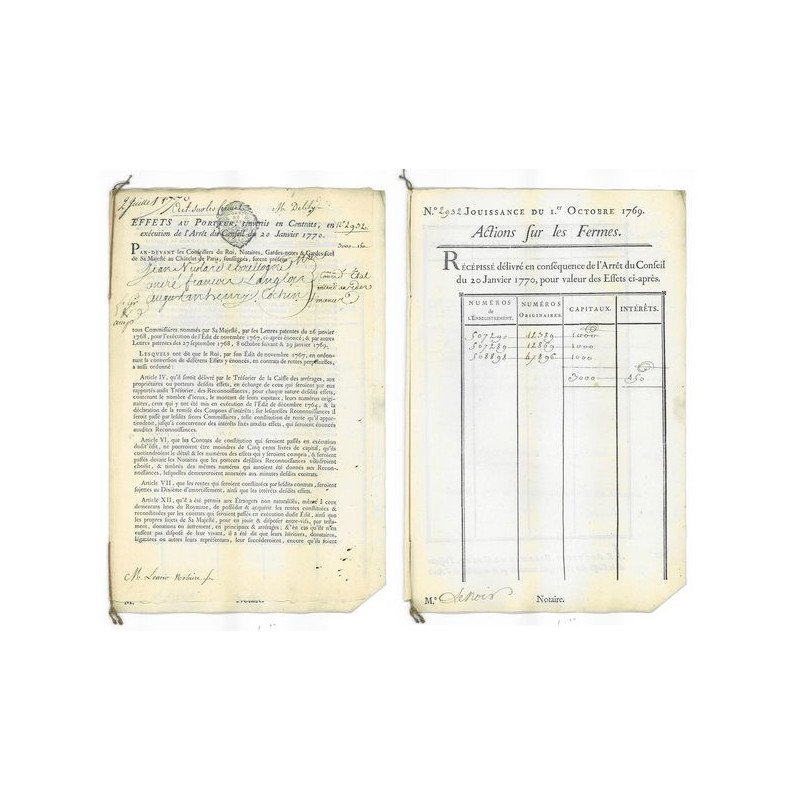 2 Juillet 1770
M. Delély
EFFETS AU PORTEUR, convertis en Contrats, en N.° 2932.
exécution de l'Arrêt du Conseil du 20 Janvier 1770.
3000 - 150
PAR-DEVANT les Conseillers du Roi, Notaires, Gardes-notes & Gardes-scel
de Sa Majesté au Châtelet de Paris, soussignés, furent présens
Jean Nicolas de Boullogne
André François Langlois
Augustin henry Cochin
tous Commissaires nommés par Sa Majesté, par ses Lettres patentes du 26 janvier
1768, pour l'exécution de l'Édit de novembre 1767, ci-après énoncé; & par autres
Lettres patentes des 27 septembre 1768, 8 octobre suivant & 29 janvier 1769,
LESQUELS ont dit que le Roi, par son Édit de novembre 1767, en ordonnant
la conversion de différens Effets y énoncés, en contrats de rentes perpétuelles,
a aussi ordonné:
Article IV, qu'il seroit délivré par le Trésorier de la Caisse des arrérages, aux
propriétaires ou porteurs desdits effets, en échange de ceux qui seroient par eux
rapportés audit Trésorier, des Reconnoissances, pour chaque nature desdits effets,
contenant le nombre d'iceux, le montant de leurs capitaux, leurs numéros originaires,
ceux qui y ont été mis en exécution de l'Édit de décembre 1764, &
la déclaration de la remise des Coupons d'intérêt; sur lesquelles Reconnoissances il
seroit passé par lesdits sieurs Commissaires, telle constitution de rente qu'il appartiendroit,
jusqu'à concurrence des intérêts fixés audits effets, qui seroient énoncés
auxdites Reconnoissances.
Article VI, que les Contrats de constitution qui seroient passés en exécution
dudit édit, ne pourroient être moindres de Cinq cents livres de capital, qu'ils
contiendroient le détail & les numéros des effets qui y seroient compris, & seroient
passés de la même nature que les porteurs desdites Reconnoissances voudroient
choisir, & timbrés des mêmes numéros qui auroient été donnés aux Reconnoissances,
lesquelles demeureroient annexées aux minutes desdits contrats.
Article VII, que les rentes qui seroient constituées par lesdits contrats, seroient
sujettes au Dixième d'amortissement, ainsi que les intérêts desdits effets.
Article XII, qu'il a été permis aux Étrangers non naturalisés, même à ceux
demeurans hors du Royaume, de posséder & acquérir les rentes constituées par
les contrats qui seroient passés en exécution dudit Édit, ainsi que
les propres sujets de Sa Majesté, pour en jouir & disposer entre-vifs, par testament,
donations ou autrement, en principaux & arrérages; & en cas qu'ils n'en
eussent pas disposé de leur vivant, il a été dit que leurs héritiers, donataires,
légataires ou autres leurs représentans, leur succéderoient, encore qu'ils fussent
M. Lenoir Notaire
N.° 2932 JOUISSANCE DU 1.er OCTOBRE 1769.
Actions sur les Fermes.
RÉCÉPISSÉ délivré en conséquence de l'Arrêt du Conseil
du 20 Janvier 1770, pour valeur des Effets ci-après.
NUMÉROS de l'ENREGISTREMENT. NUMÉROS ORIGINAIRES. CAPITAUX. INTÉRÊTS.
507290 12389 1000
507289 12869 1000
508898 47896 1000
3000 150
M.e Lenoir Notaire.